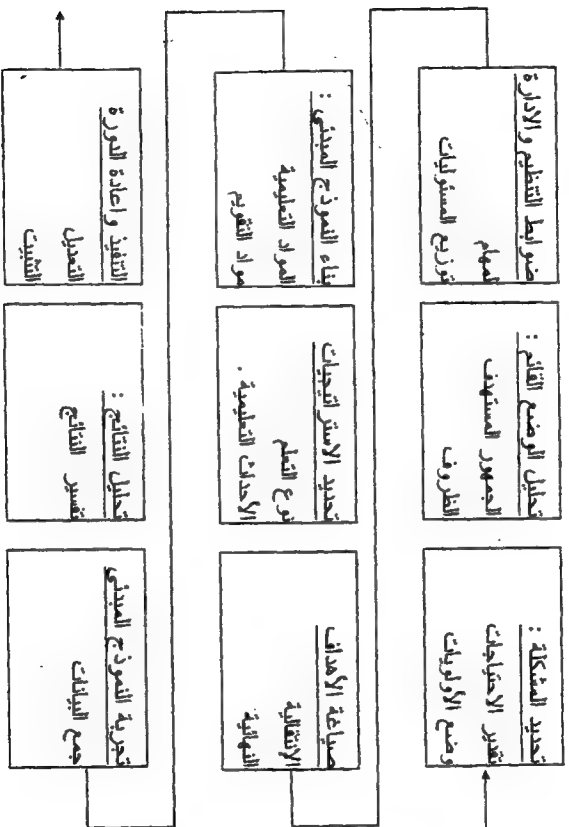 تحديد المشكلة :
تقدير الاحتياجات
وضع الأولويات
تحليل الوضع القائم :
الجمهور المستهدف
الظروف
ضوابط التنظيم والادارة
المهام
توزيع المسئوليات
صياغة الأهداف
الانتقالية
النهائية
تحديد الاستراتيجيات
نوع التعلم
الأحداث التعليمية .
بناء النموذج المبدئى :
المواد التعليمية
مواد التقويم
تجربة النموذج المبدئى
جمع البيانات
تحليل النتائج :
تفسير النتائج
التنفيذ واعادة الدورة
التعديل
التثبيت